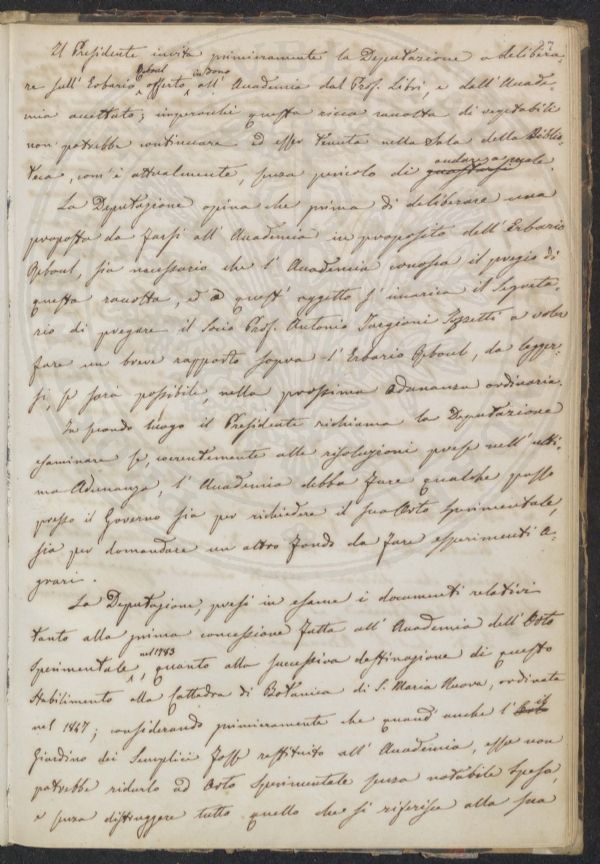 27
Il Presidente invita primieramente la Deputazione a delibera-
re sull' Erbario Reboul offerto in dono all' Accademia dal Prof. Libri, e dall' Accade-
mia accettato; imperocchè questa ricca raccolta di vegetabili
non potrebbe continuare ad esser tenuta nella Sala della Biblio-
teca, com' è attualmente, senza pericolo di guastarsi andare a male.
La Deputazione opina che prima di deliberare una
proposta da farsi all' Accademia in proposito dell' Erbario
Reboul, sia necessario che l' Accademia conosca il pregio di
questa raccolta, e a quest' oggetto s' incarica il Segreta-
rio di pregare il Socio Prof. Antonio Targioni Tozzetti a voler
fare un breve rapporto sopra l' Erbario Reboul, da legger-
si, se sarà possibile, nella prossima adunanza ordinaria.
In secondo luogo il Presidente richiama la Deputazione
esaminare se, coerentemente alle risoluzioni prese nell' ulti-
ma Adunanza, l' Accademia debba fare qualche passo
presso il Governo sia per richiedere il suo Orto Sperimentale,
sia per domandare un altro fondo da fare esperimenti a-
grari.
La Deputazione, presi in esame i documenti relativi
tanto alla prima concessione fatta all' Accademia dell' Orto
Sperimentale nel 1783, quanto alla successiva destinazione di questo
Stabilimento alla Cattedra di Botanica di S. Maria Nuova, ordinata
nel 1847; considerando primieramente che quand' anche l' Orto il
Giardino dei Semplici fosse restituito all' Accademia, esso non
potrebbe ridurlo ad Orto Sperimentale senza notabile spesa,
e senza distruggere tutto quello che si riferisce alla sua